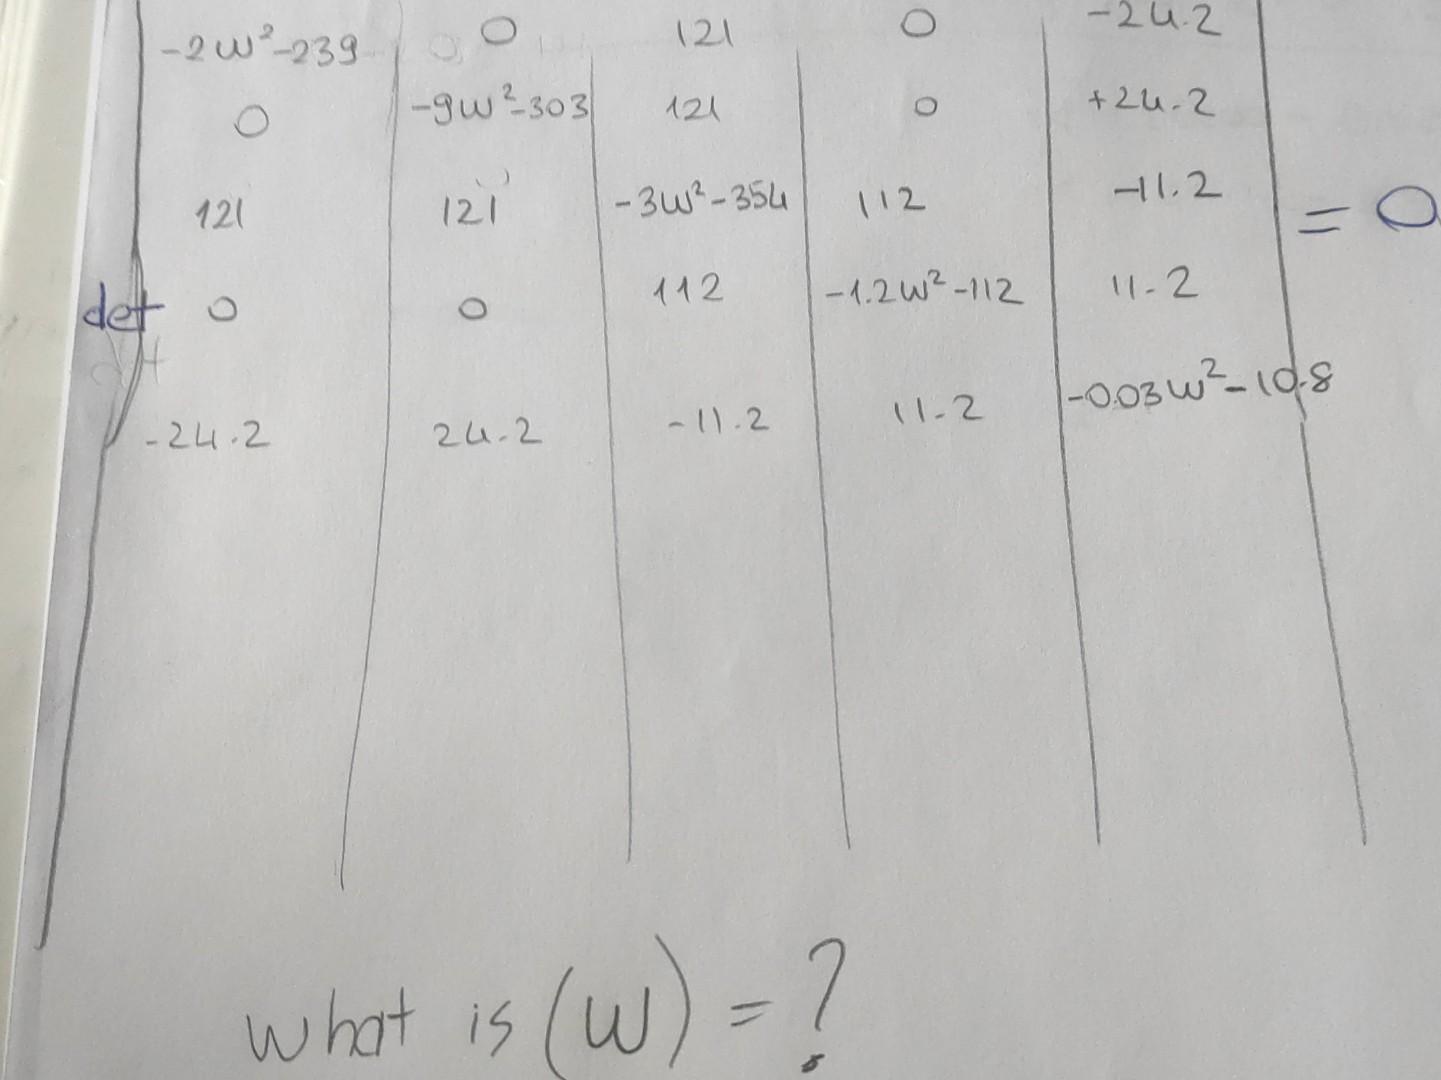 -2w²-239 0 121 0 -24.2
0 -9w²-303 121 0 +24.2
121 121 -3w²-354 112 -11.2 = 0
det 0 0 112 -1.2w²-112 11.2
-24.2 24.2 -11.2 11.2 -0.03w²-10.8
what is (w) = ?